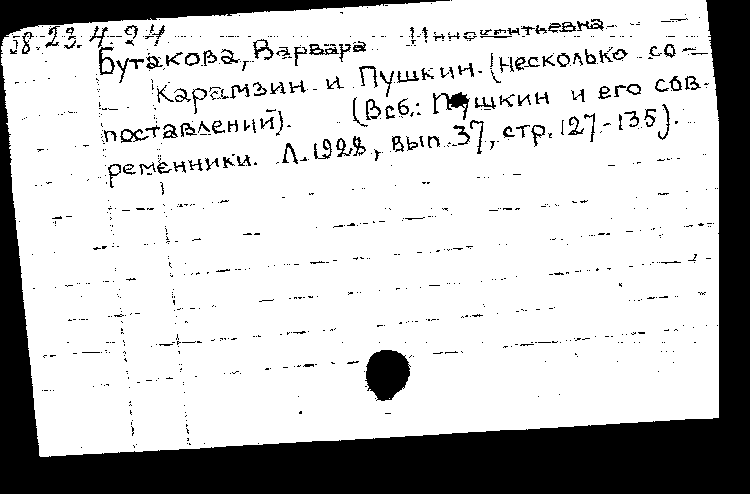 38.23.4.24
Бутакова, Варвара Иннокентьевна
Карамзин и Пушкин. (несколько со-
поставлений). (В сб.: Пушкин и его сов-
ременники. Л. 1928, вып. 37, стр. 127-135).